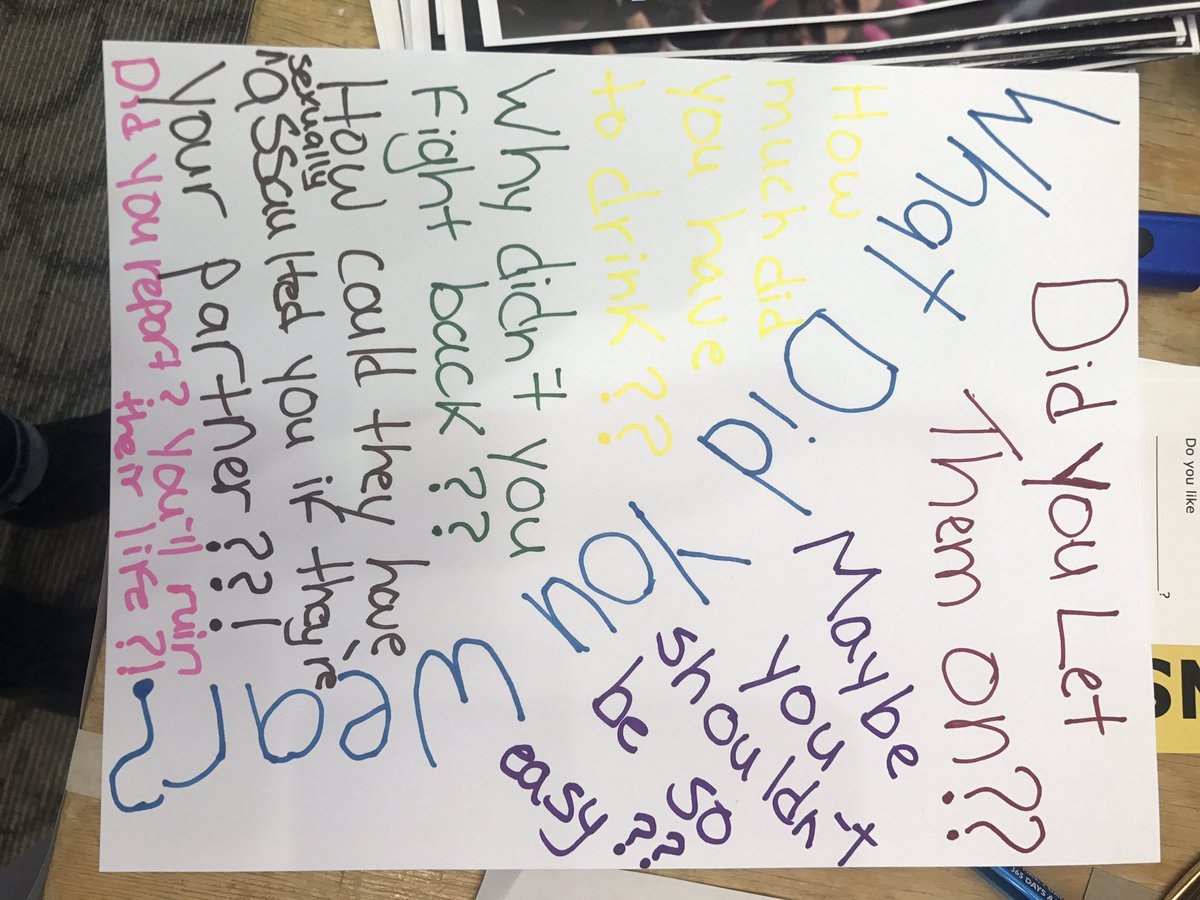 Did you Let
Them on??
What
Did
You
Wear?
How
much did
you have
to drink??
Maybe
you
shouldn't
be so
easy??
Why didn't you
Fight back??
How could they have
sexually
assaulted you if they're
your partner??!
Did you report? You'll ruin
their life?!
Do you like
____________?
365 DAYS A